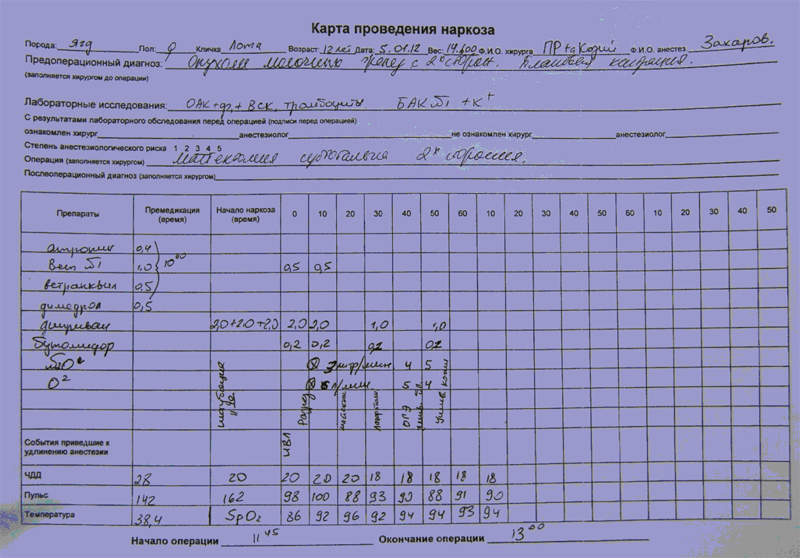 Карта проведения наркоза
Порода: ягд Пол: ♀ Кличка Лота Возраст: 12 лет Дата: 5.01.12 Вес: 14.600 Ф.И.О. хирурга Ф.И.О. анестез. Захаров.
Предоперационный диагноз: Опухоли молочных желез с 2х сторон.
(заполняется хирургом до операции)
Лабораторные исследования: ОАК+ф,+ВСК, тромбоциты БАК №1 + K+
С результатами лабораторного обследования перед операцией (подписи перед операцией)
ознакомлен хирург анестезиолог не ознакомлен хирург анестезиолог
Степень анестезиологического риска 1 2 3 4 5
Операция (заполняется хирургом) мастэктомия 2х сторонняя.
Послеоперационный диагноз (заполняется хирургом)
Препараты Премедикация (время) Начало наркоза (время) 0 10 20 30 40 50 10 20 30 40 50 10 20 30 40 50
атропин 0,4
1,0 10 00 0,5 0,5
ветранквил 0,5
димедрол 0,5
2,0+2,0+2,0 2,0 2,0 1,0 1,0
бутомидор 0,2 0,2 0,2 0,2
4 5
O2 5 4
ИВЛ
События приведшие к удлинению анестезии
ЧДД 28 20 20 20 20 18 18 18 18 18
Пульс 142 162 98 100 88 93 90 88 91 90
Температура 38,4 SpO2 86 92 96 92 94 94 93 94
Начало операции 11 45 Окончание операции 13 00